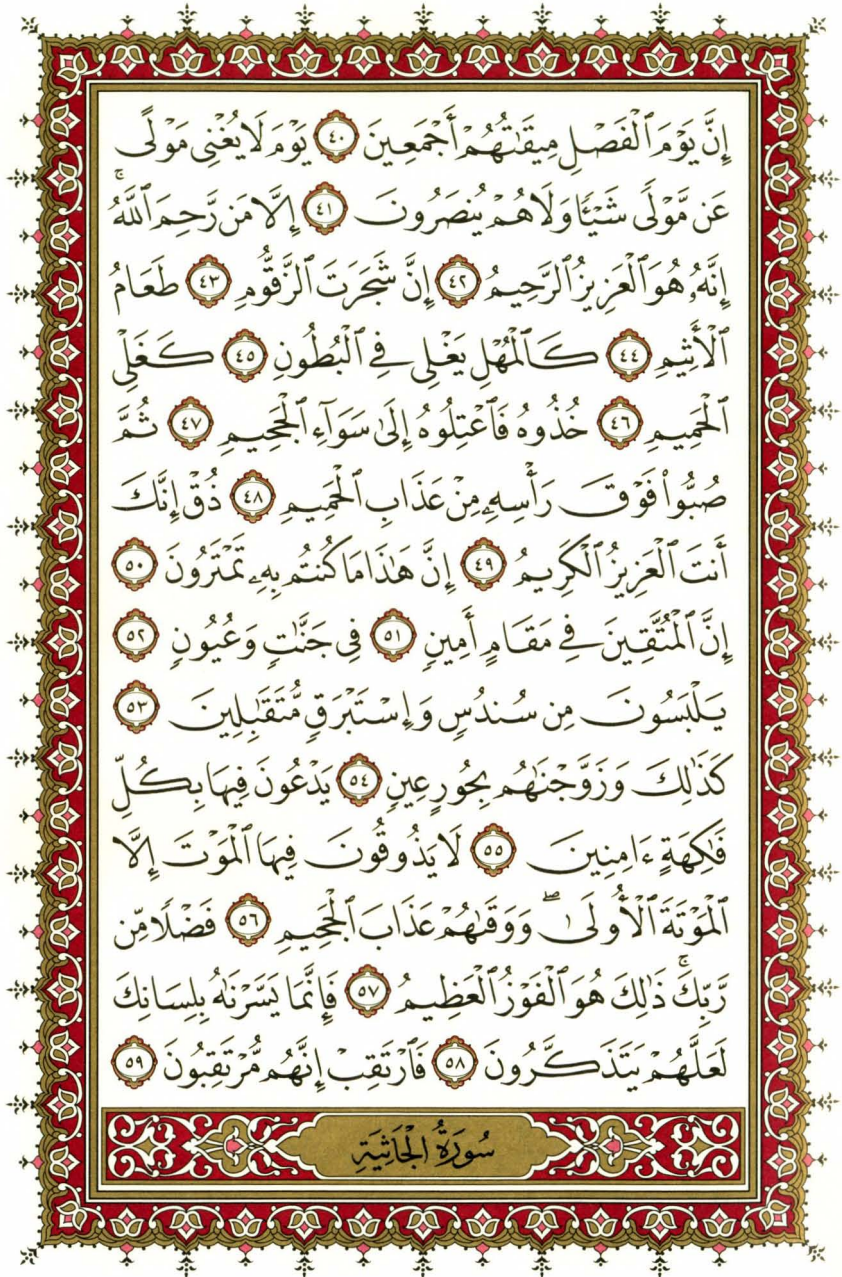 إِنَّ يَوْمَ ٱلْفَصْلِ مِيقَٰتُهُمْ أَجْمَعِينَ ٤٠ يَوْمَ لَا يُغْنِى مَوْلًى
عَن مَّوْلًى شَيْـًٔا وَلَا هُمْ يُنصَرُونَ ٤١ إِلَّا مَن رَّحِمَ ٱللَّهُ ۚ
إِنَّهُۥ هُوَ ٱلْعَزِيزُ ٱلرَّحِيمُ ٤٢ إِنَّ شَجَرَتَ ٱلزَّقُّومِ ٤٣ طَعَامُ
ٱلْأَثِيمِ ٤٤ كَٱلْمُهْلِ يَغْلِى فِى ٱلْبُطُونِ ٤٥ كَغَلْىِ
ٱلْحَمِيمِ ٤٦ خُذُوهُ فَٱعْتِلُوهُ إِلَىٰ سَوَآءِ ٱلْجَحِيمِ ٤٧ ثُمَّ
صُبُّوا۟ فَوْقَ رَأْسِهِۦ مِنْ عَذَابِ ٱلْحَمِيمِ ٤٨ ذُقْ إِنَّكَ
أَنتَ ٱلْعَزِيزُ ٱلْكَرِيمُ ٤٩ إِنَّ هَٰذَا مَا كُنتُم بِهِۦ تَمْتَرُونَ ٥٠
إِنَّ ٱلْمُتَّقِينَ فِى مَقَامٍ أَمِينٍ ٥١ فِى جَنَّٰتٍ وَعُيُونٍ ٥٢
يَلْبَسُونَ مِن سُندُسٍ وَإِسْتَبْرَقٍ مُّتَقَٰبِلِينَ ٥٣
كَذَٰلِكَ وَزَوَّجْنَٰهُم بِحُورٍ عِينٍ ٥٤ يَدْعُونَ فِيهَا بِكُلِّ
فَٰكِهَةٍ ءَامِنِينَ ٥٥ لَا يَذُوقُونَ فِيهَا ٱلْمَوْتَ إِلَّا
ٱلْمَوْتَةَ ٱلْأُولَىٰ ۖ وَوَقَىٰهُمْ عَذَابَ ٱلْجَحِيمِ ٥٦ فَضْلًا مِّن
رَّبِّكَ ۚ ذَٰلِكَ هُوَ ٱلْفَوْزُ ٱلْعَظِيمُ ٥٧ فَإِنَّمَا يَسَّرْنَٰهُ بِلِسَانِكَ
لَعَلَّهُمْ يَتَذَكَّرُونَ ٥٨ فَٱرْتَقِبْ إِنَّهُم مُّرْتَقِبُونَ ٥٩
سُورَةُ الْجَاثِيَةِ